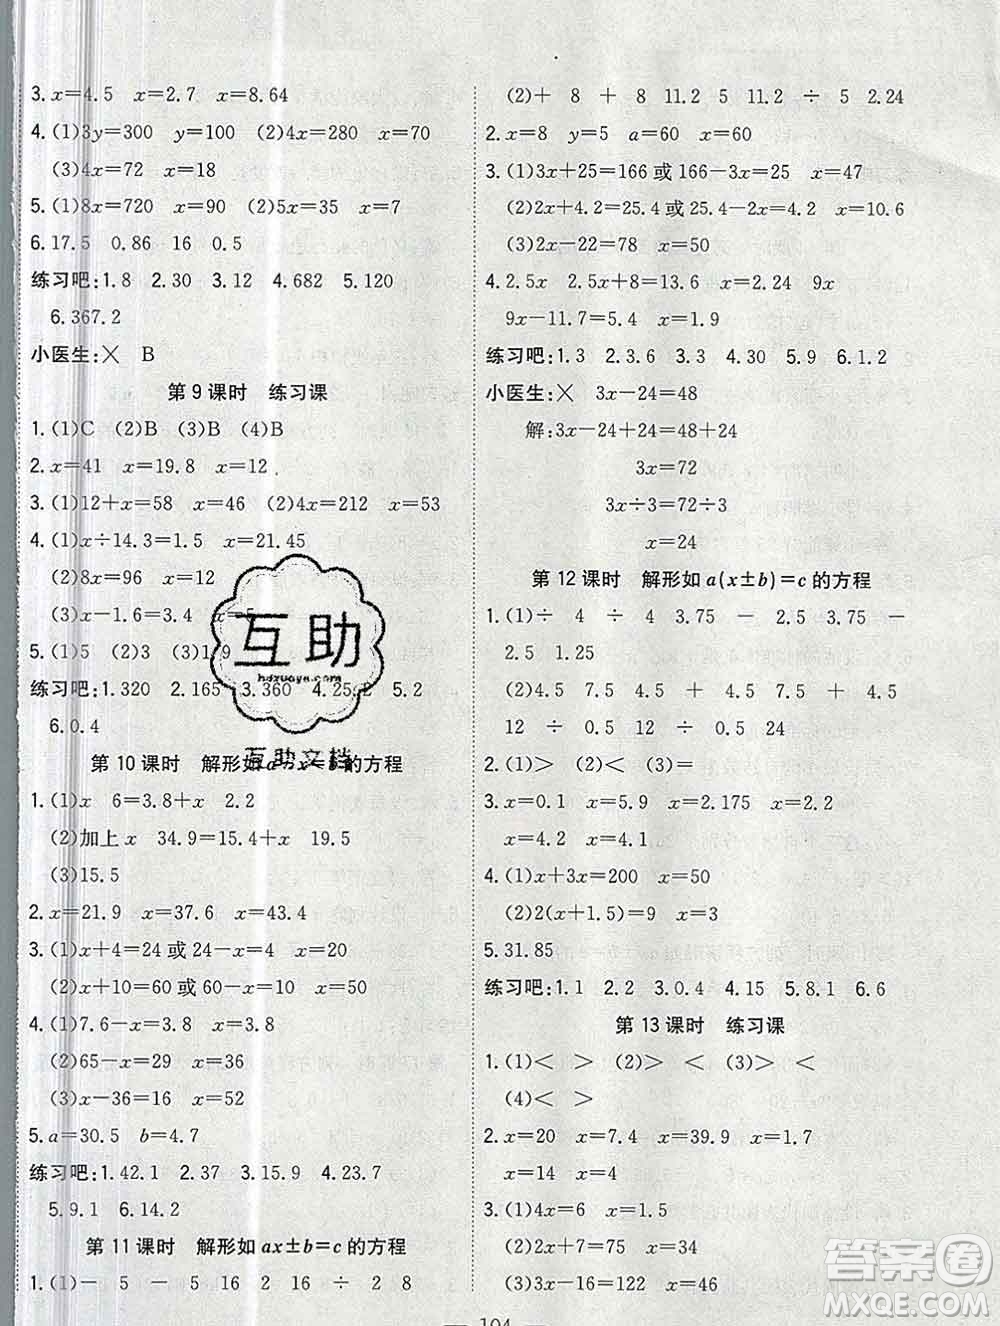 3. x=4.5 x=2.7 x=8.64
4. (1)3y=300 y=100 (2)4x=280 x=70
(3)4x=72 x=18
5. (1)8x=720 x=90 (2)5x=35 x=7
6. 17.5 0.86 16 0.5
练习吧:1.8 2.30 3.12 4.682 5.120
6.367.2
小医生:× B
第 9 课时 练习课
1. (1)C (2)B (3)B (4)B
2. x=41 x=19.8 x=12
3. (1)12+x=58 x=46 (2)4x=212 x=53
4. (1)x÷14.3=1.5 x=21.45
(2)8x=96 x=12
(3)x-1.6=3.4 x=5
5. (1)5 (2)3 (3)1.9
练习吧:1.320 2.165 3.360 4.25.2 5.2
6.0.4
第 10 课时 解形如 a-x=b 的方程
1. (1)x 6=3.8+x 2.2
(2)加上 x 34.9=15.4+x 19.5
(3)15.5
2. x=21.9 x=37.6 x=43.4
3. (1)x+4=24 或 24-x=4 x=20
(2)x+10=60 或 60-x=10 x=50
4. (1)7.6-x=3 x=4.6
(2)65-x=29 x=36
(3)x-36=16 x=52
5. a=30.5 b=4.7
练习吧:1.42.1 2.37 3.15.9 4.23.7
5.9.1 6.14.2
第 11 课时 解形如 ax±b=c 的方程
1. (1)- 5 - 5 16 2 16 ÷ 2 8
(2)+ 8 + 8 11.2 5 11.2 ÷ 5 2.24
2. x=8 y=5 a=60 x=60
3. (1)3x+25=166 或 166-3x=25 x=47
(2)2x+4.2=25.4 或 25.4-2x=4.2 x=10.6
(3)2x-22=78 x=50
4. 2.5x 2.5x+8=13.6 x=2.24 9x
9x-11.7=5.4 x=1.9
练习吧:1.3 2.3.6 3.3 4.30 5.9 6.1.2
小医生:× 3x-24=48
解:3x-24+24=48+24
3x=72
3x÷3=72÷3
x=24
第 12 课时 解形如 a(x±b)=c 的方程
1. (1)÷ 4 ÷ 4 3.75 - 2.5 3.75 -
2.5 1.25
(2)4.5 7.5 4.5 + 7.5 + 4.5
12 ÷ 0.5 ÷ 0.5 24
2. (1)> (2)< (3)=
3. x=0.1 x=5 x=2.175 x=2
x=4 x=4.1
4. (1)x+3x=200 x=50
(2)2(x+1.5)=9 x=3
5. 31.85
练习吧:1.1 2.2 3.0.4 4.15 5.8.1 6.6
第 13 课时 练习课
1. (1)< > (2)> < (3)> <
(4)< >
2. x=20 x=7.4 x=39.9 x=1.7
x=14 x=4
3. (1)4x=6 x=1.5
(2)2x+2=70 x=34
(3)3x-16=122 x=46
104
互助
hdzuoye.com
互助文档
答案圈
MXQE.COM